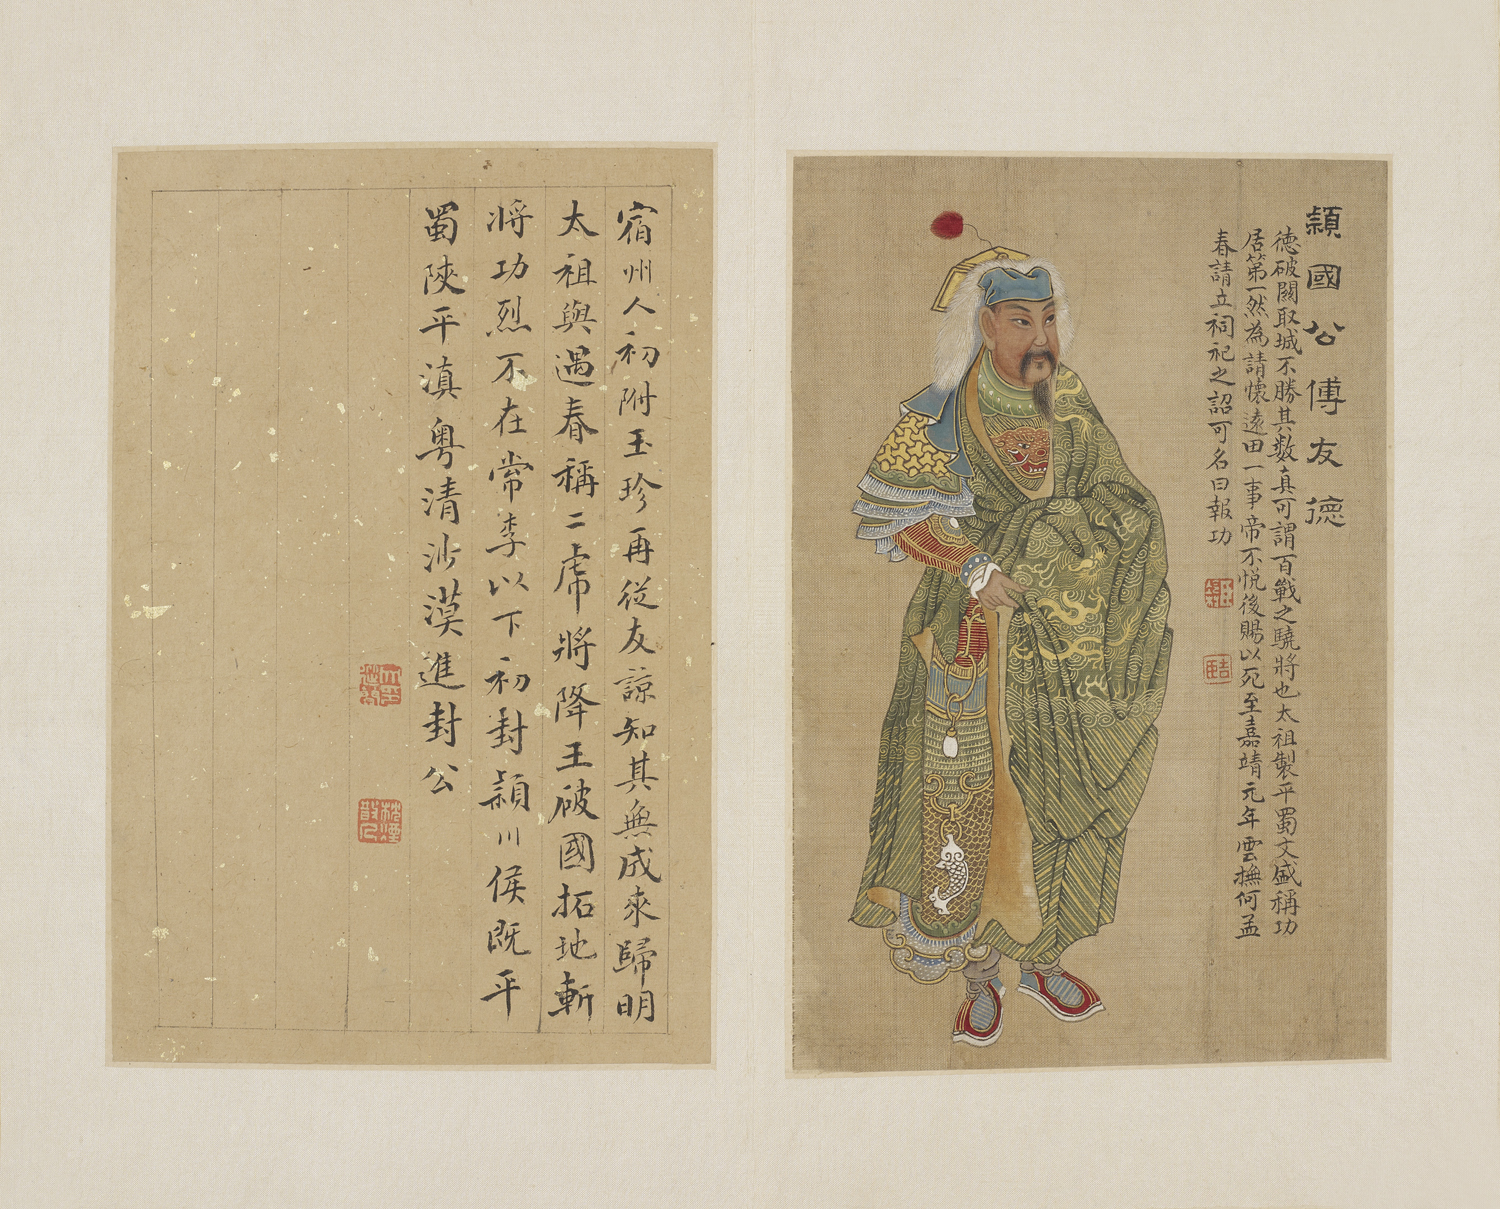 穎國公傅友德
德破關取城不勝其數真可謂百戰之驍將也太祖製平蜀文盛稱功
居第一然為請懷遠田一事帝不悅後賜以死至嘉靖元年雲撫何孟
春請立祠祀之詔可名曰報功
宿州人初附玉珍再從友諒知其無成來歸明
太祖與遇春稱二虎將降王破國拓地斬
將功烈不在常李以下初封潁川侯既平
蜀陝平滇粵清沙漠進封公